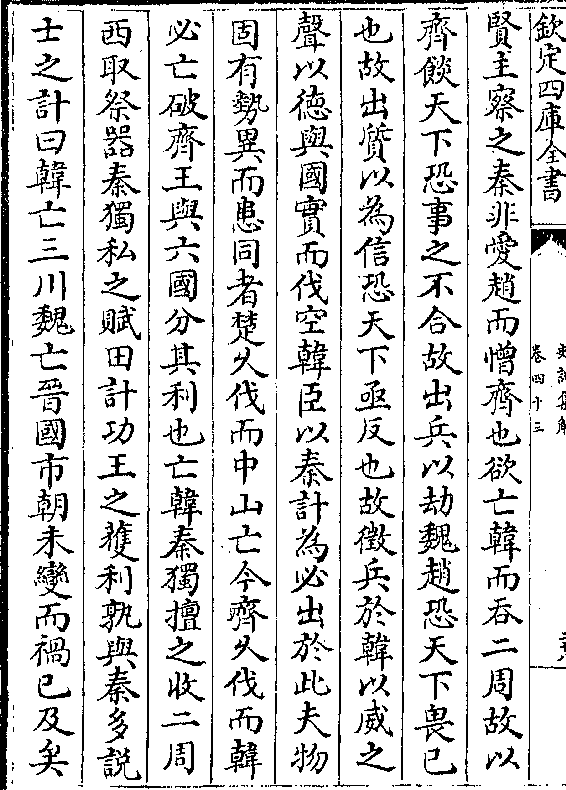 欽定四庫全書
史記集解
卷四十三
賢主察之秦非愛趙而憎齊也欲亡韓而吞二周故以
齊餤天下恐事之不合故出兵以劫魏趙恐天下畏已
也故出質以為信恐天下亟反也故徴兵於韓以威之
聲以徳與國實而伐空韓臣以秦計為必出於此夫物
固有勢異而患同者楚乆伐而中山亡今齊乆伐而韓
必亡破齊王與六國分其利也亡韓秦獨擅之收二周
西取祭器秦獨私之賦田計功王之獲利孰與秦多説
士之計曰韓亡三川魏亡晉國市朝未變而禍已及矣